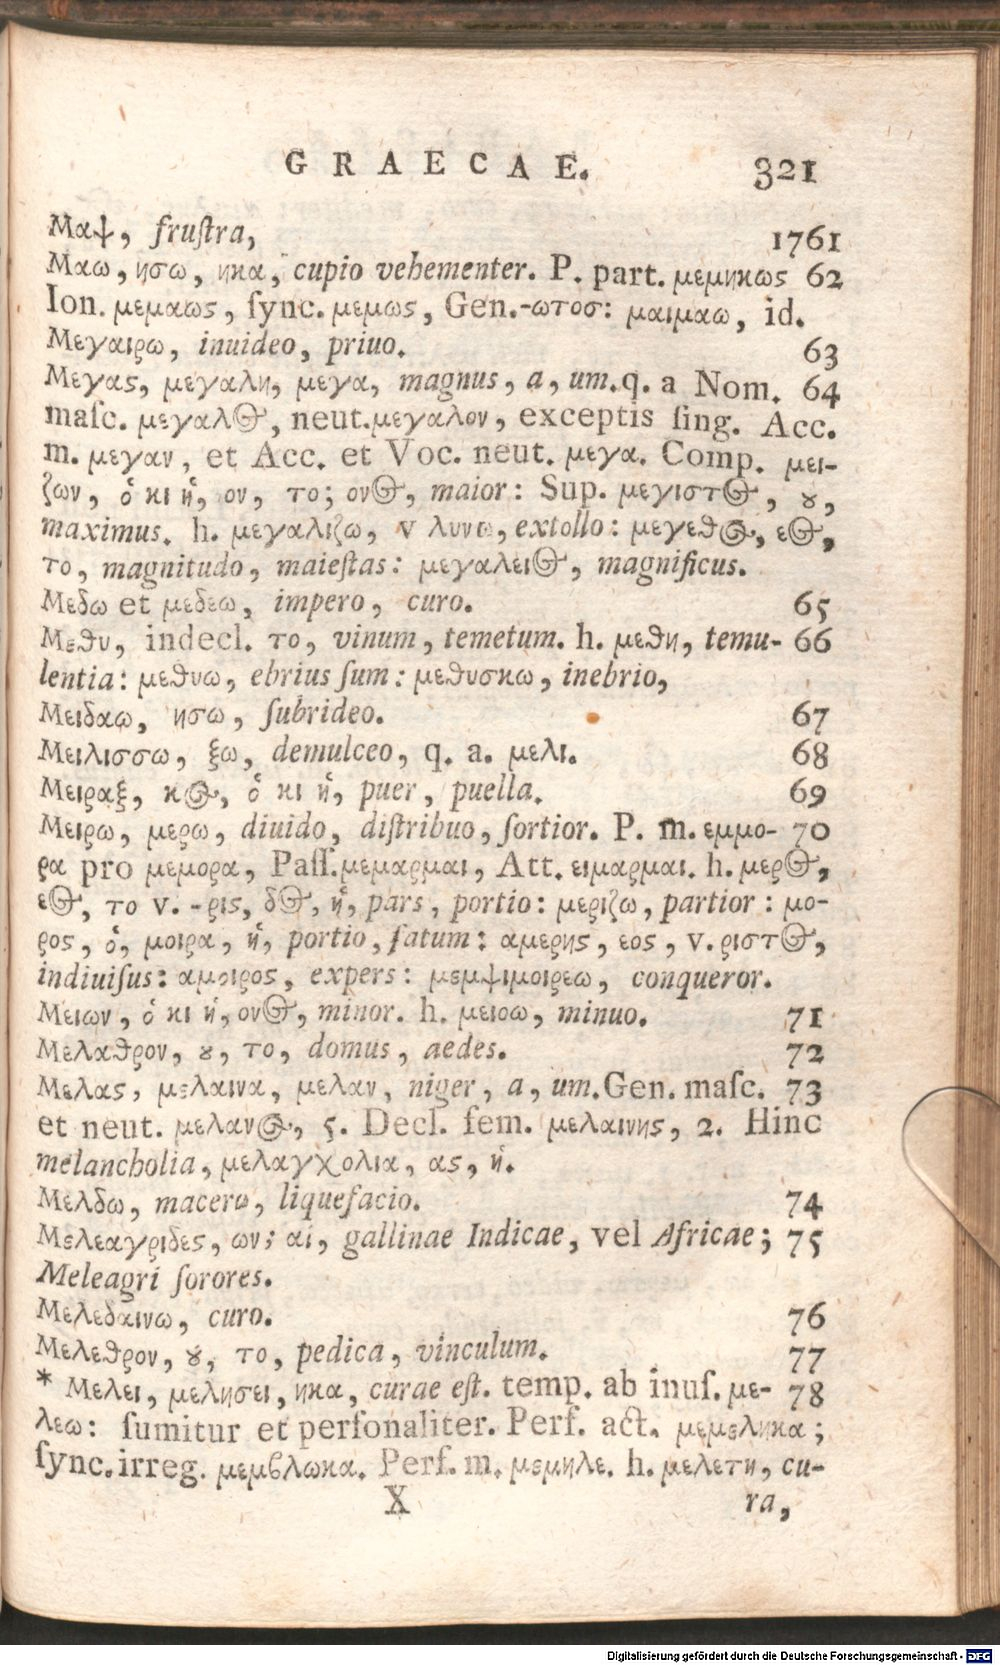 GRAECAE. 321
Μαψ, fruſtra, 1761
Μαω, ησω, ηκα, cupio vehementer. P. part. μεμηκως 62
Ion. μεμαως, ſync. μεμως, Gen.-ωτοσ: μαιμαω, id.
Μεγαιρω, inuideo, priuo. 63
Μεγας, μεγαλη, μεγα, magnus, a, um. q. a Nom. 64
maſc. μεγαλος, neut. μεγαλον, exceptis ſing. Acc.
m. μεγαν, et Acc. et Voc. neut. μεγα. Comp. μει-
ζων, ὁ κι ἡ, ον, το; ονος, maior: Sup. μεγιστος, ȣ,
maximus. h. μεγαλιζω, v λυνω, extollo: μεγεθος, εος,
το, magnitudo, maieſtas: μεγαλειος, magnificus.
Μεδω et μεδεω, impero, curo. 65
Μεθυ, indecl. το, vinum, temetum. h. μεθη, temu- 66
lentia: μεθυω, ebrius ſum: μεθυσκω, inebrio,
Μειδαω, ησω, ſubrideo. 67
Μειλισσω, ξω, demulceo, q. a. μελι. 68
Μειραξ, κος, ὁ κι ἡ, puer, puella. 69
Μειρω, μερω, diuido, diſtribuo, ſortior. P. m. εμμο- 70
ρα pro μεμορα, Paſſ. μεμαρμαι, Att. ειμαρμαι. h. μερος,
εος, το v. -ρις, δος, ἡ, pars, portio: μεριζω, partior: μο-
ρος, ὁ, μοιρα, ἡ, portio, fatum: αμερης, εος, v. ριστος,
indiuiſus: αμοιρος, expers: μεμψιμοιρεω, conqueror.
Μειων, ὁ κι ἡ, ονος, minor. h. μειοω, minuo. 71
Μελαθρον, ȣ, το, domus, aedes. 72
Μελας, μελαινα, μελαν, niger, a, um. Gen. maſc. 73
et neut. μελανος, 5. Decl. fem. μελαινης, 2. Hinc
melancholia, μελαγχολια, ας, ἡ.
Μελδω, macero, liquefacio. 74
Μελεαγριδες, ων; αἱ, gallinae Indicae, vel Africae; 75
Meleagri ſorores.
Μελεδαινω, curo. 76
Μελεθρον, ȣ, το, pedica, vinculum. 77
* Μελει, μελησει, ηκα, curae eſt. temp. ab inuſ. με- 78
λεω: ſumitur et perſonaliter. Perf. act. μεμεληκα;
ſync. irreg. μεμβλωκα. Perf. m. μεμηλε. h. μελετη, cu-
X ra,
Digitalisierung gefördert durch die Deutsche Forschungsgemeinschaft - DFG